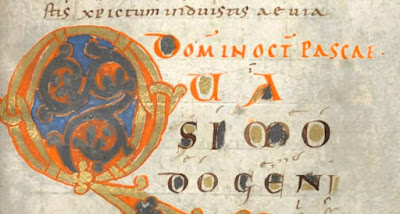 stis xpictum induistis aeuia
DOM IN OCT PASCAE.
QUA
SIMO
DOGENI